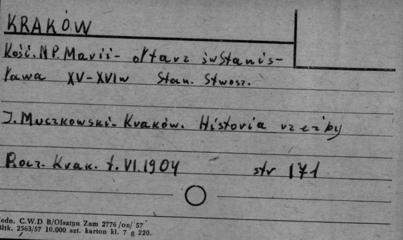 KRAKÓW
Kość. N.P. Marii - ołtarz św Stanis-
ława XV-XVIw Stan. Stwosz.
J. Muczkowski. Kraków. Historia rzeźby
Rocz. Krak. t. VI. 1904 str 171
edn. C.W.D B/Olsztyn Zam 2776/on/ 57
Bltk. 2563/57 10.000 szt. karton kl. 7 g 220.